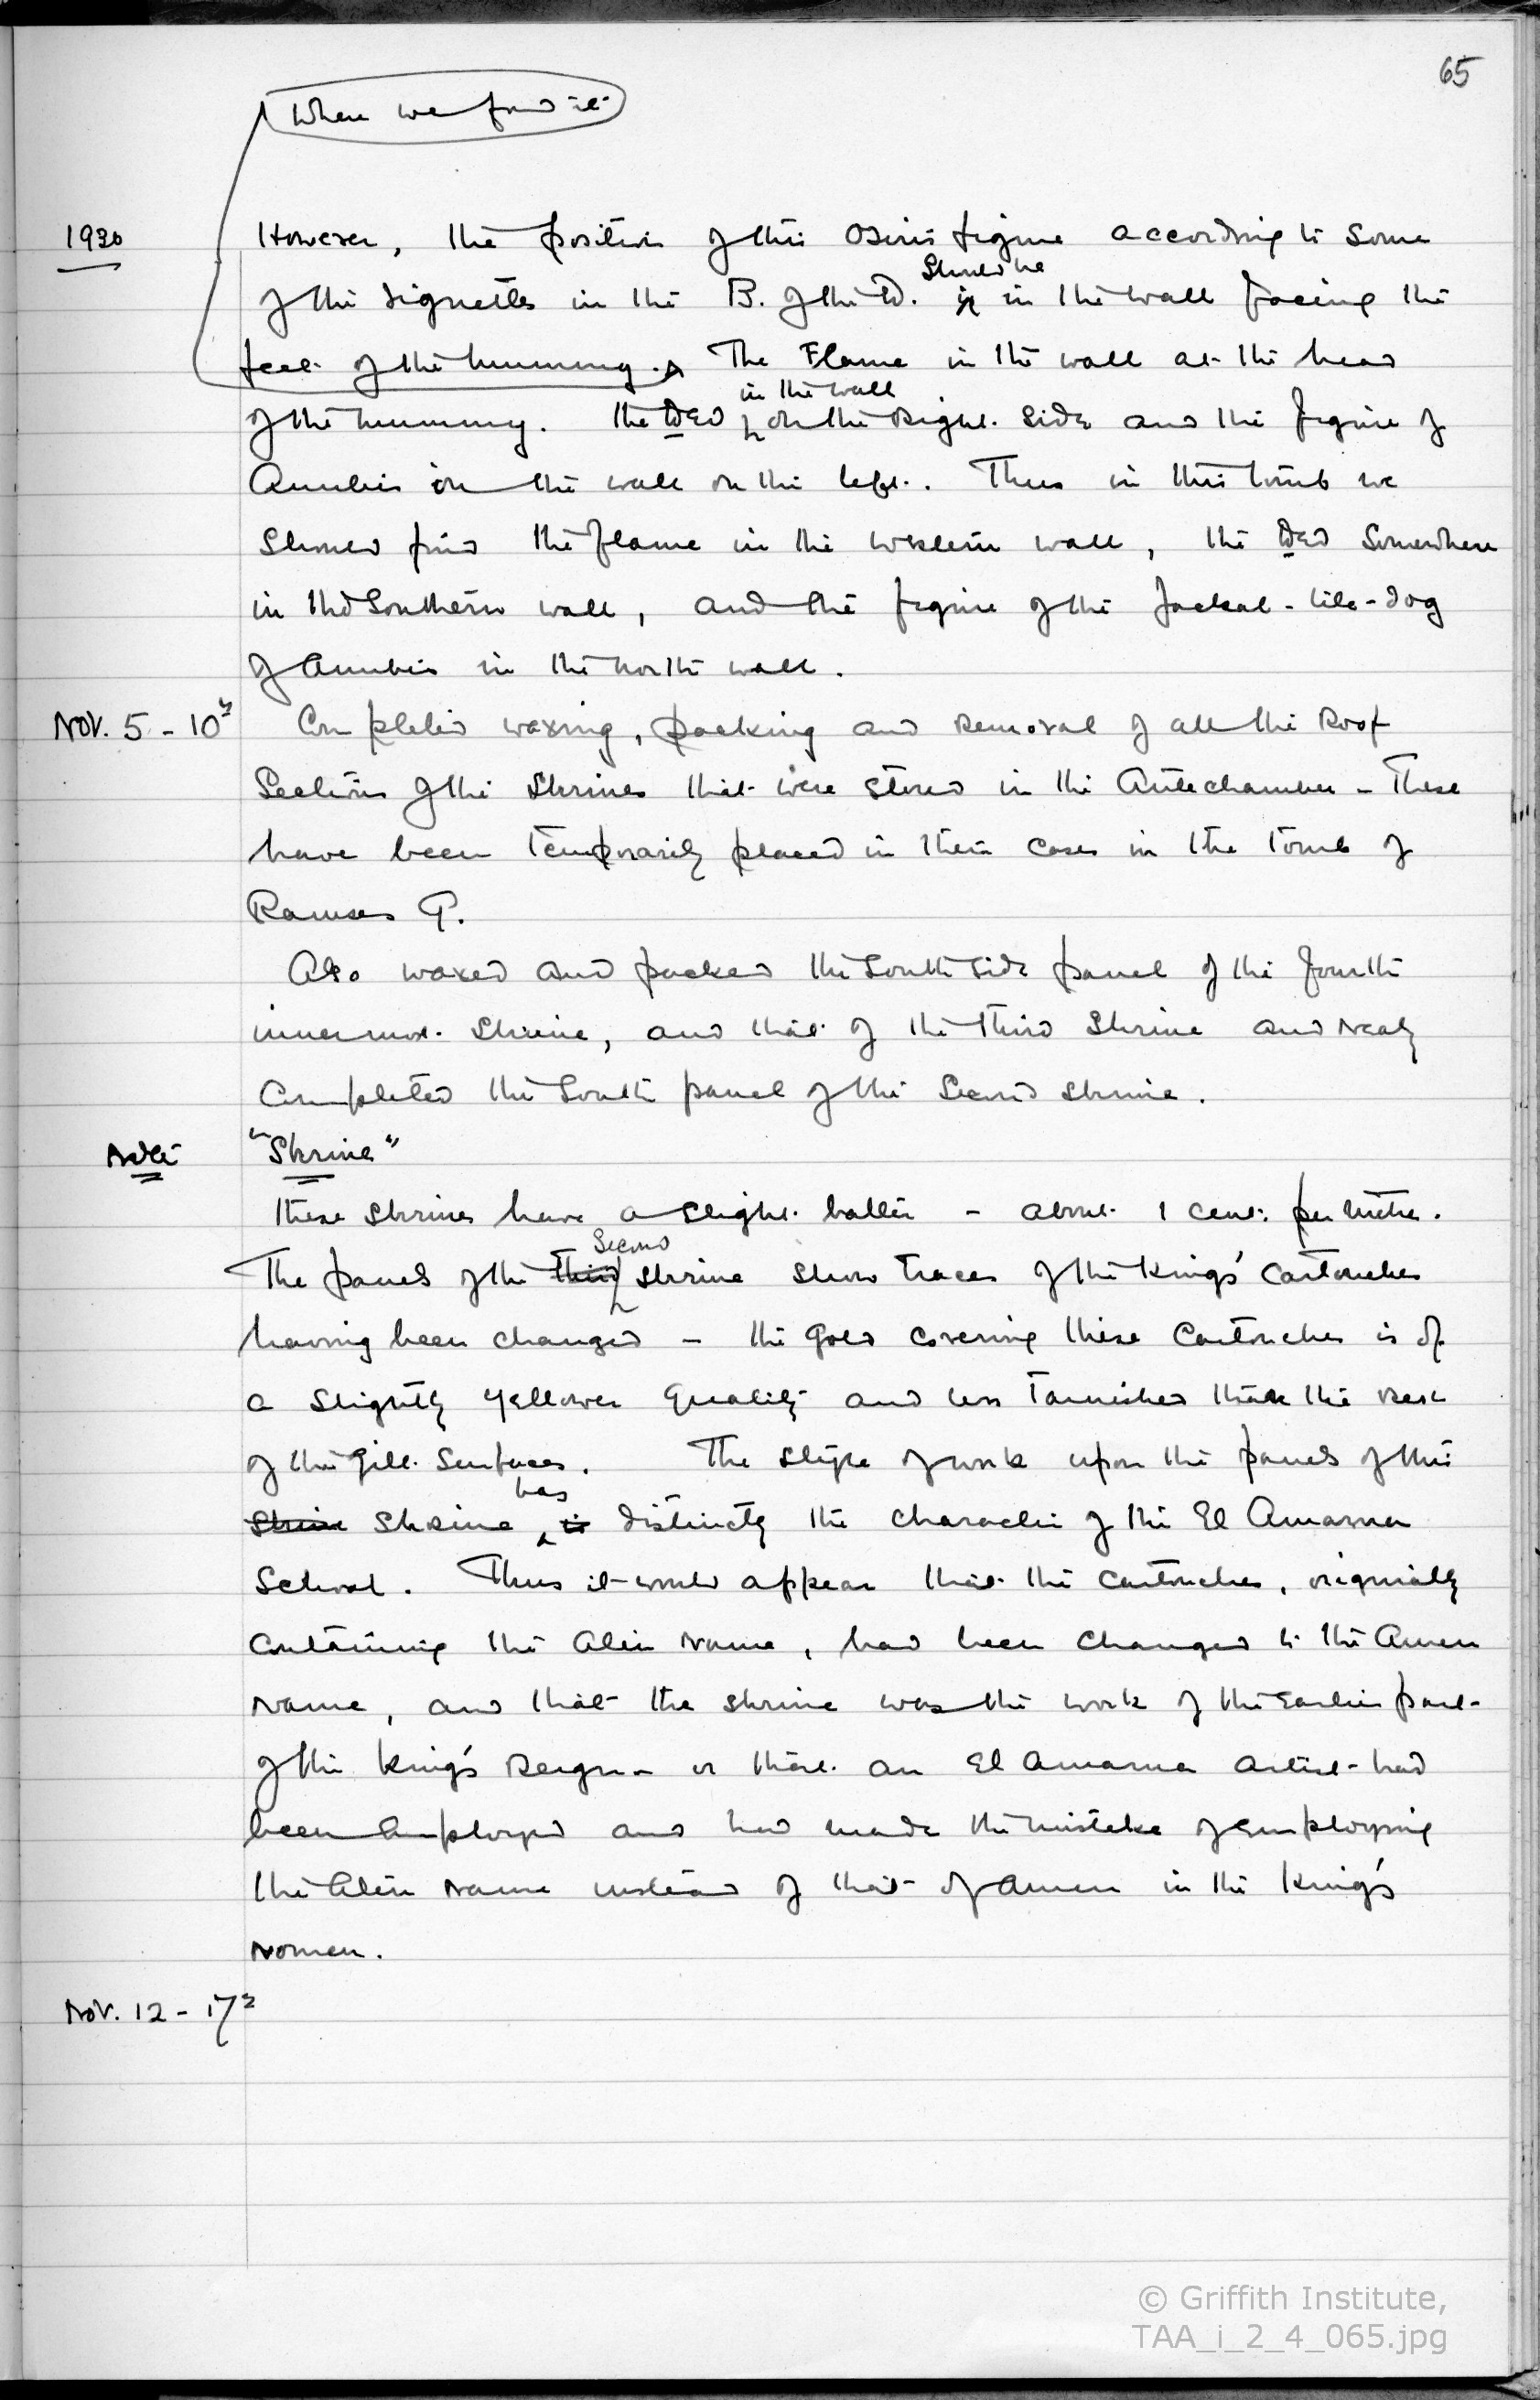 65
Where we find it
1930
However, the position of this Osiris figure according to some
should be
of the vignettes in the B. of the D. is in the wall facing the
feet of the mummy. The Flame in the wall at the head
in the wall
of the mummy. The Ded on the right side and the figure of
Anubis in the wall on the left. Thus in this tomb we
should find the flame in the western wall, the Ded somewhere
in the Southern wall, and the figure of the Jackal-like-dog
of Anubis in the north wall.
Nov. 5 - 10th Completed waxing, packing and removal of all the Roof
Sections of the Shrines that were stored in the Antechamber - These
have been temporarily placed in their cases in the tomb of
Ramses
Also waxed and packed the South side panel of the fourth
innermost Shrine, and that of the third Shrine and nearly
completed the South panel of the Second shrine.
Note "Shrine"
These shrines have a slight batter - about 1 cent: per metre.
Second
The panels of the third shrine show traces of the King's Cartouches
having been changed - the gold covering these Cartouches is of
a slightly yellower quality and less tarnished than the rest
of the gilt surfaces. The style of work upon the panels of this
has
Shrine Shrine is distinctly the character of the El Amarna
School. Thus it would appear that the cartouches, originally
containing the Aten name, had been changed to the Amen
name, and that the shrine was the work of the earlier part
of the King's Reign - or that an El Amarna artist had
been employed and had made the mistake of employing
the Aten name instead of that of Amen in the King's
nomen.
Nov. 12 - 17th
© Griffith Institute,
TAA_i_2_4_065.jpg